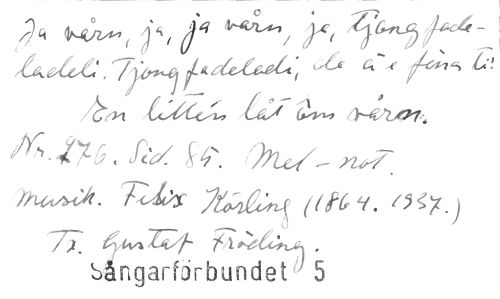 Ja vårn, ja, ja vårn, ja, Tjongfade-
ladeli. Tjongfadeladi, de ä e fina ti!
En litten låt ôm vårn.
Nr. 276. Sid. 85. Mel-not.
musik. Felix Körling (1864. 1937.)
Tx. Gustaf Fröding.
Sångarförbundet 5